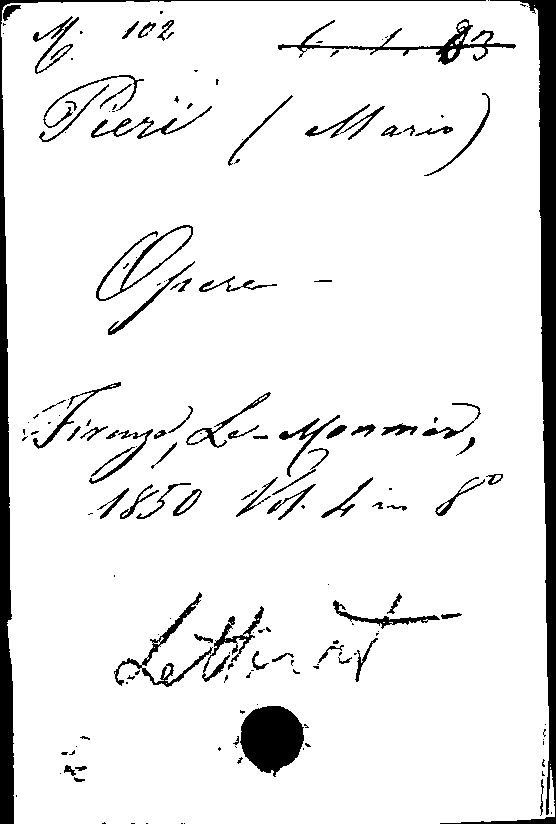 M. 102
6. 1. 83
Pieri (Mario)
Opere -
Firenze, Le-Monnier,
1850 Vol. 4 in 8º
Letterat